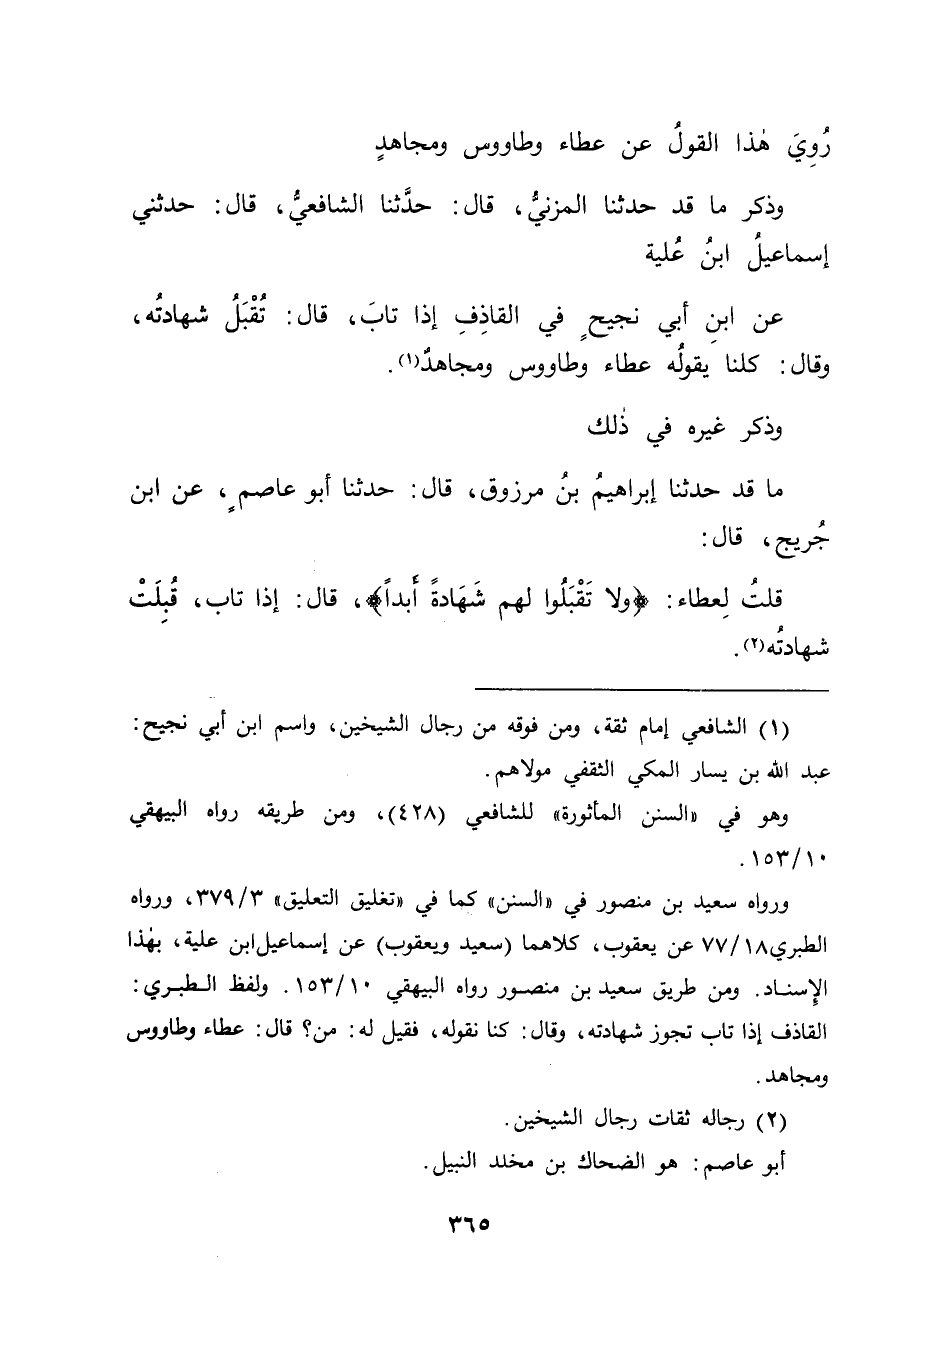 رُوِيَ هٰذا القولُ عن عطاء وطاووس ومجاهدٍ
وذكر ما قد حدثنا المزنيُّ، قال: حدَّثنا الشافعيُّ، قال: حدثني
إسماعيلُ ابنُ عُلية
عن ابنِ أبي نجيحٍ في القاذِفِ إذا تابَ، قال: تُقْبَلُ شهادتُه،
وقال: كلنا يقولُه عطاء وطاووس ومجاهدٌ(١).
وذكر غيره في ذٰلك
ما قد حدثنا إبراهيمُ بنُ مرزوق، قال: حدثنا أبو عاصمٍ، عن ابن
جُريج، قال:
قلتُ لِعطاء: ﴿ولا تَقْبَلُوا لهم شَهَادةً أَبداً﴾، قال: إذا تاب، قُبِلَتْ
شهادتُه(٢).
(١) الشافعي إمام ثقة، ومن فوقه من رجال الشيخين، واسم ابن أبي نجيح:
عبد الله بن يسار المكي الثقفي مولاهم.
وهو في «السنن المأثورة» للشافعي (٤٢٨)، ومن طريقه رواه البيهقي
١٥٣/١٠.
ورواه سعيد بن منصور في «السنن» كما في «تغليق التعليق» ٣٧٩/٣، ورواه
الطبري ٧٧/١٨ عن يعقوب، كلاهما (سعيد ويعقوب) عن إسماعيل ابن علية، بهٰذا
الإسناد. ومن طريق سعيد بن منصور رواه البيهقي ١٥٣/١٠. ولفظ الطبري:
القاذف إذا تاب تجوز شهادته، وقال: كنا نقوله، فقيل له: من؟ قال: عطاء وطاووس
ومجاهد.
(٢) رجاله ثقات رجال الشيخين.
أبو عاصم: هو الضحاك بن مخلد النبيل.
٣٦٥